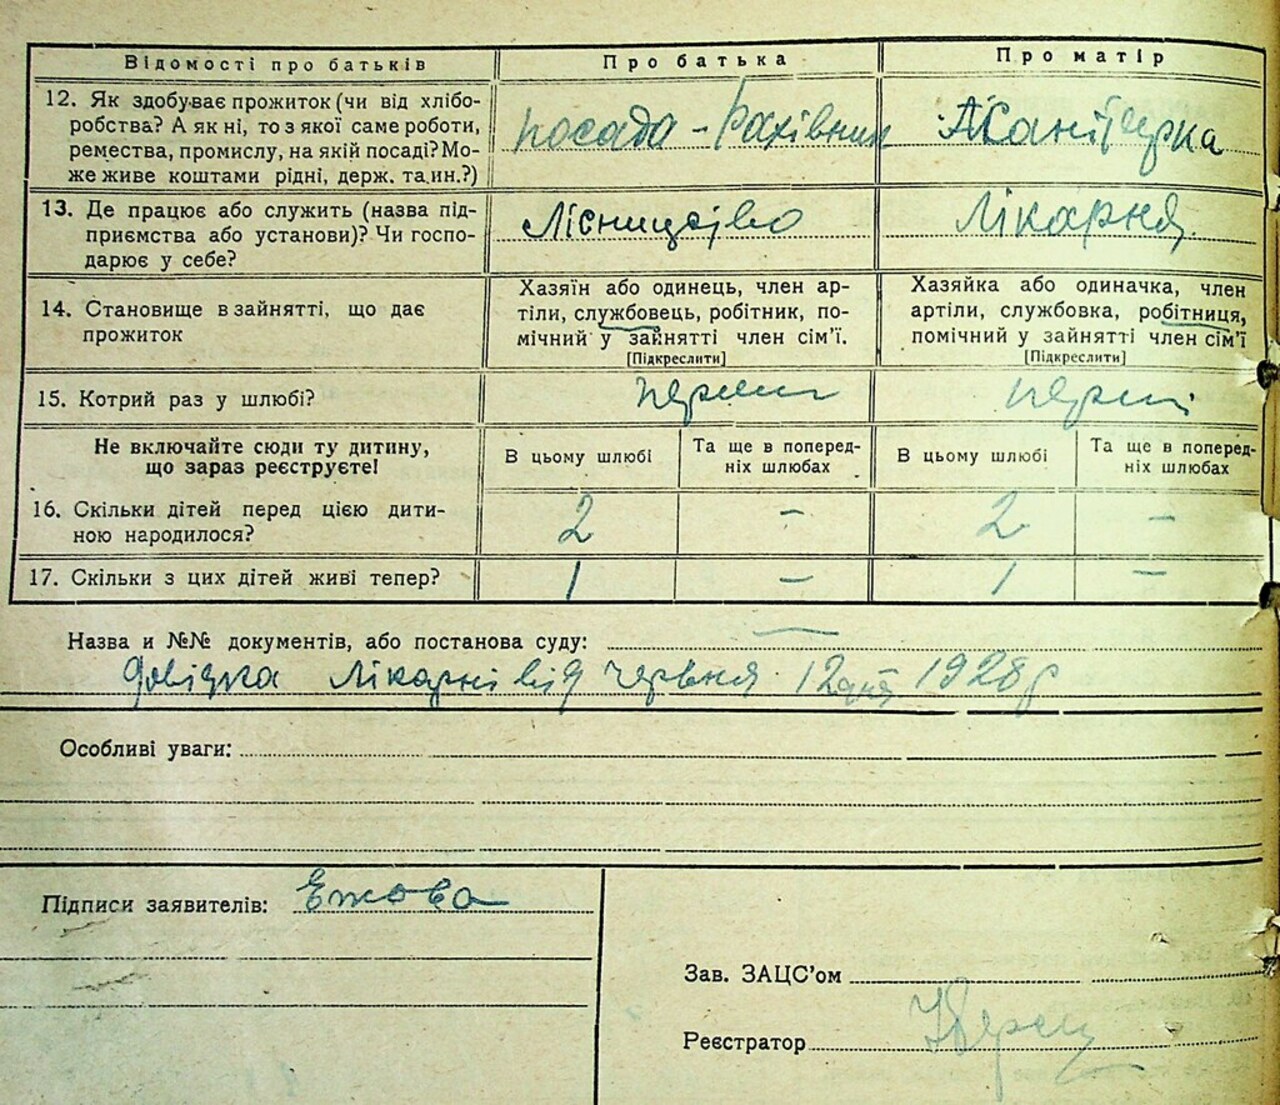 Відомості про батьків
Про батька
Про матір
12. Як здобуває прожиток (чи від хлібо-
робства? А як ні, то з якої саме роботи,
ремества, промислу, на якій посаді? Мо-
же живе коштами рідні, держ. та ин.?)
посада - Рахівник
Санітарка
13. Де працює або служить (назва під-
приємства або установи)? Чи госпо-
дарює у себе?
Лісництво
Лікарня
14. Становище в зайнятті, що дає
прожиток
Хазяїн або одинець, член ар-
тілі, службовець, робітник, по-
мічний у зайнятті член сім'ї.
[Підкреслити]
Хазяйка або одиначка, член
артілі, службовка, робітниця,
помічний у зайнятті член сім'ї
[Підкреслити]
15. Котрий раз у шлюбі?
перший
перший
Не включайте сюди ту дитину,
що зараз реєструєте!
В цьому шлюбі
Та ще в поперед-
ніх шлюбах
В цьому шлюбі
Та ще в поперед-
ніх шлюбах
16. Скільки дітей перед цією дити-
ною народилося?
2
-
2
-
17. Скільки з цих дітей живі тепер?
1
-
1
-
Назва и №№ документів, або постанова суду:
довідка Лікарні від червня 12 дня 1928 р
Особливі уваги:
Підписи заявителів: Ежова
Зав. ЗАЦС'ом
Реєстратор